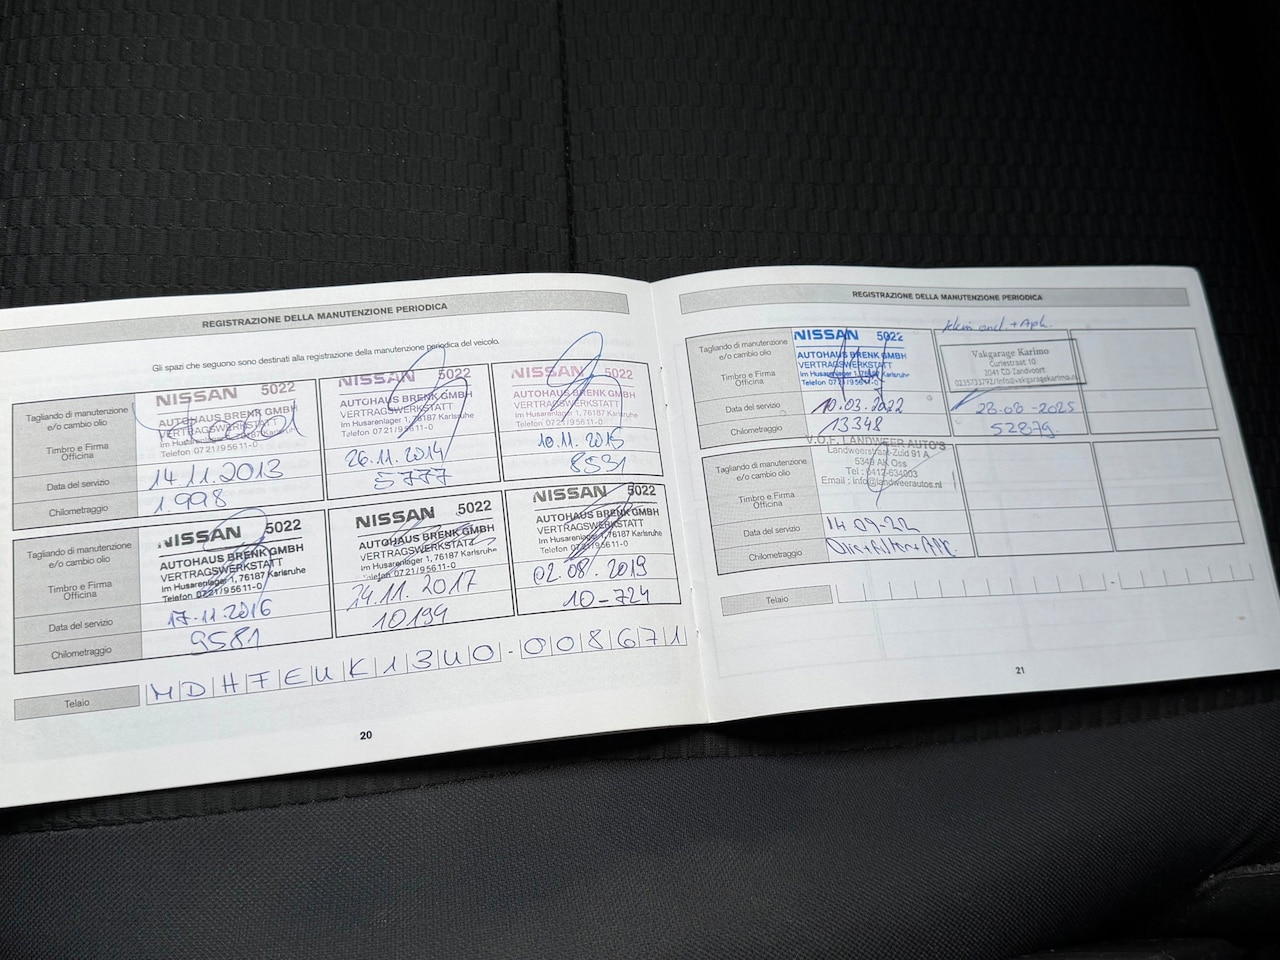 REGISTRAZIONE DELLA MANUTENZIONE PERIODICA
Gli spazi che seguono sono destinati alla registrazione della manutenzione periodica del veicolo.
Tagliando di manutenzione
e/o cambio olio
Timbro e Firma
Officina
Data del servizio
Chilometraggio
NISSAN 5022
AUTOHAUS BRENK GMBH
VERTRAGSWERKSTATT
Im Husarenlager 1, 76187 Karlsruhe
Telefon 07 21/9 56 11-0
14.11.2013
1.998
NISSAN 5022
AUTOHAUS BRENK GMBH
VERTRAGSWERKSTATT
Im Husarenlager 1, 76187 Karlsruhe
Telefon 07 21/9 56 11-0
26.11.2014
5777
NISSAN 5022
AUTOHAUS BRENK GMBH
VERTRAGSWERKSTATT
Im Husarenlager 1, 76187 Karlsruhe
Telefon 07 21/9 56 11-0
10.11.2015
8531
Tagliando di manutenzione
e/o cambio olio
Timbro e Firma
Officina
Data del servizio
Chilometraggio
NISSAN 5022
AUTOHAUS BRENK GMBH
VERTRAGSWERKSTATT
Im Husarenlager 1, 76187 Karlsruhe
Telefon 07 21/9 56 11-0
17.11.2016
9581
NISSAN 5022
AUTOHAUS BRENK GMBH
VERTRAGSWERKSTATT
Im Husarenlager 1, 76187 Karlsruhe
Telefon 07 21/9 56 11-0
24.11.2017
10194
NISSAN 5022
AUTOHAUS BRENK GMBH
VERTRAGSWERKSTATT
Im Husarenlager 1, 76187 Karlsruhe
Telefon 07 21/9 56 11-0
02.08.2019
10-724
Telaio
MDHFEUK13U0-008671
20
REGISTRAZIONE DELLA MANUTENZIONE PERIODICA
Tagliando di manutenzione
e/o cambio olio
Timbro e Firma
Officina
Data del servizio
Chilometraggio
NISSAN 5022
AUTOHAUS BRENK GMBH
VERTRAGSWERKSTATT
Im Husarenlager 1, 76187 Karlsruhe
Telefon 07 21/9 56 11-0
10.03.2022
13348
+ Apk.
Vakgarage Karimo
Curiestraat 10
2041 CD Zandvoort
0235733792/info@vakgaragekarimo.nl
28-08-2025
52879.
Tagliando di manutenzione
e/o cambio olio
Timbro e Firma
Officina
Data del servizio
Chilometraggio
V.O.F. LANDWEER AUTO'S
Landweerstraat-Zuid 91 A
5349 AK Oss
Tel : 0412-634003
Email : info@landweerautos.nl
14-09-22
Olie+filter+APK.
Telaio
21